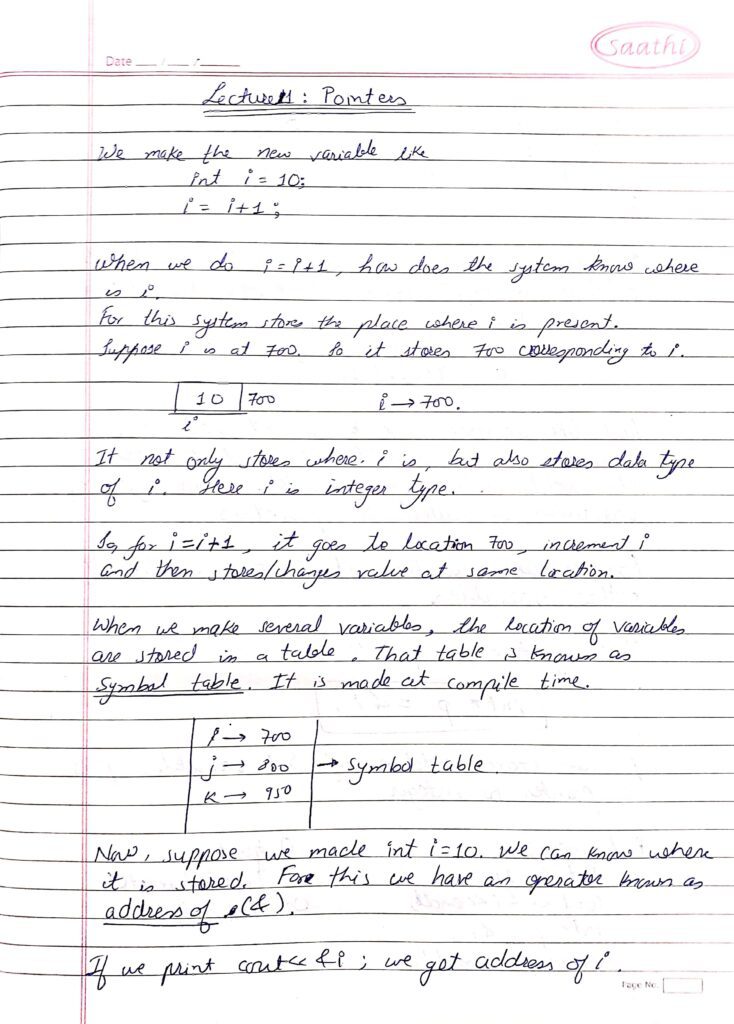 Saathi
Date ___/___/______
Lecture 1 : Pointers
We make the new variable like
int i = 10;
i = i+1 ;
When we do i = i+1, how does the system know where
is i.
For this system stores the place where i is present.
Suppose i is at 700. So it stores 700 corresponding to i.
10 700 i → 700.
i
It not only stores where i is, but also stores data type
of i. Here i is integer type.
So, for i=i+1, it goes to location 700, increment i
and then stores/changes value at same location.
When we make several variables, the location of variables
are stored in a table. That table is known as
symbol table. It is made at compile time.
i → 700
j → 800 → symbol table
K → 950
Now, suppose we made int i=10. We can know where
it is stored. For this we have an operator known as
address of (&).
If we print cout<< &i ; we get address of i.
Page No.